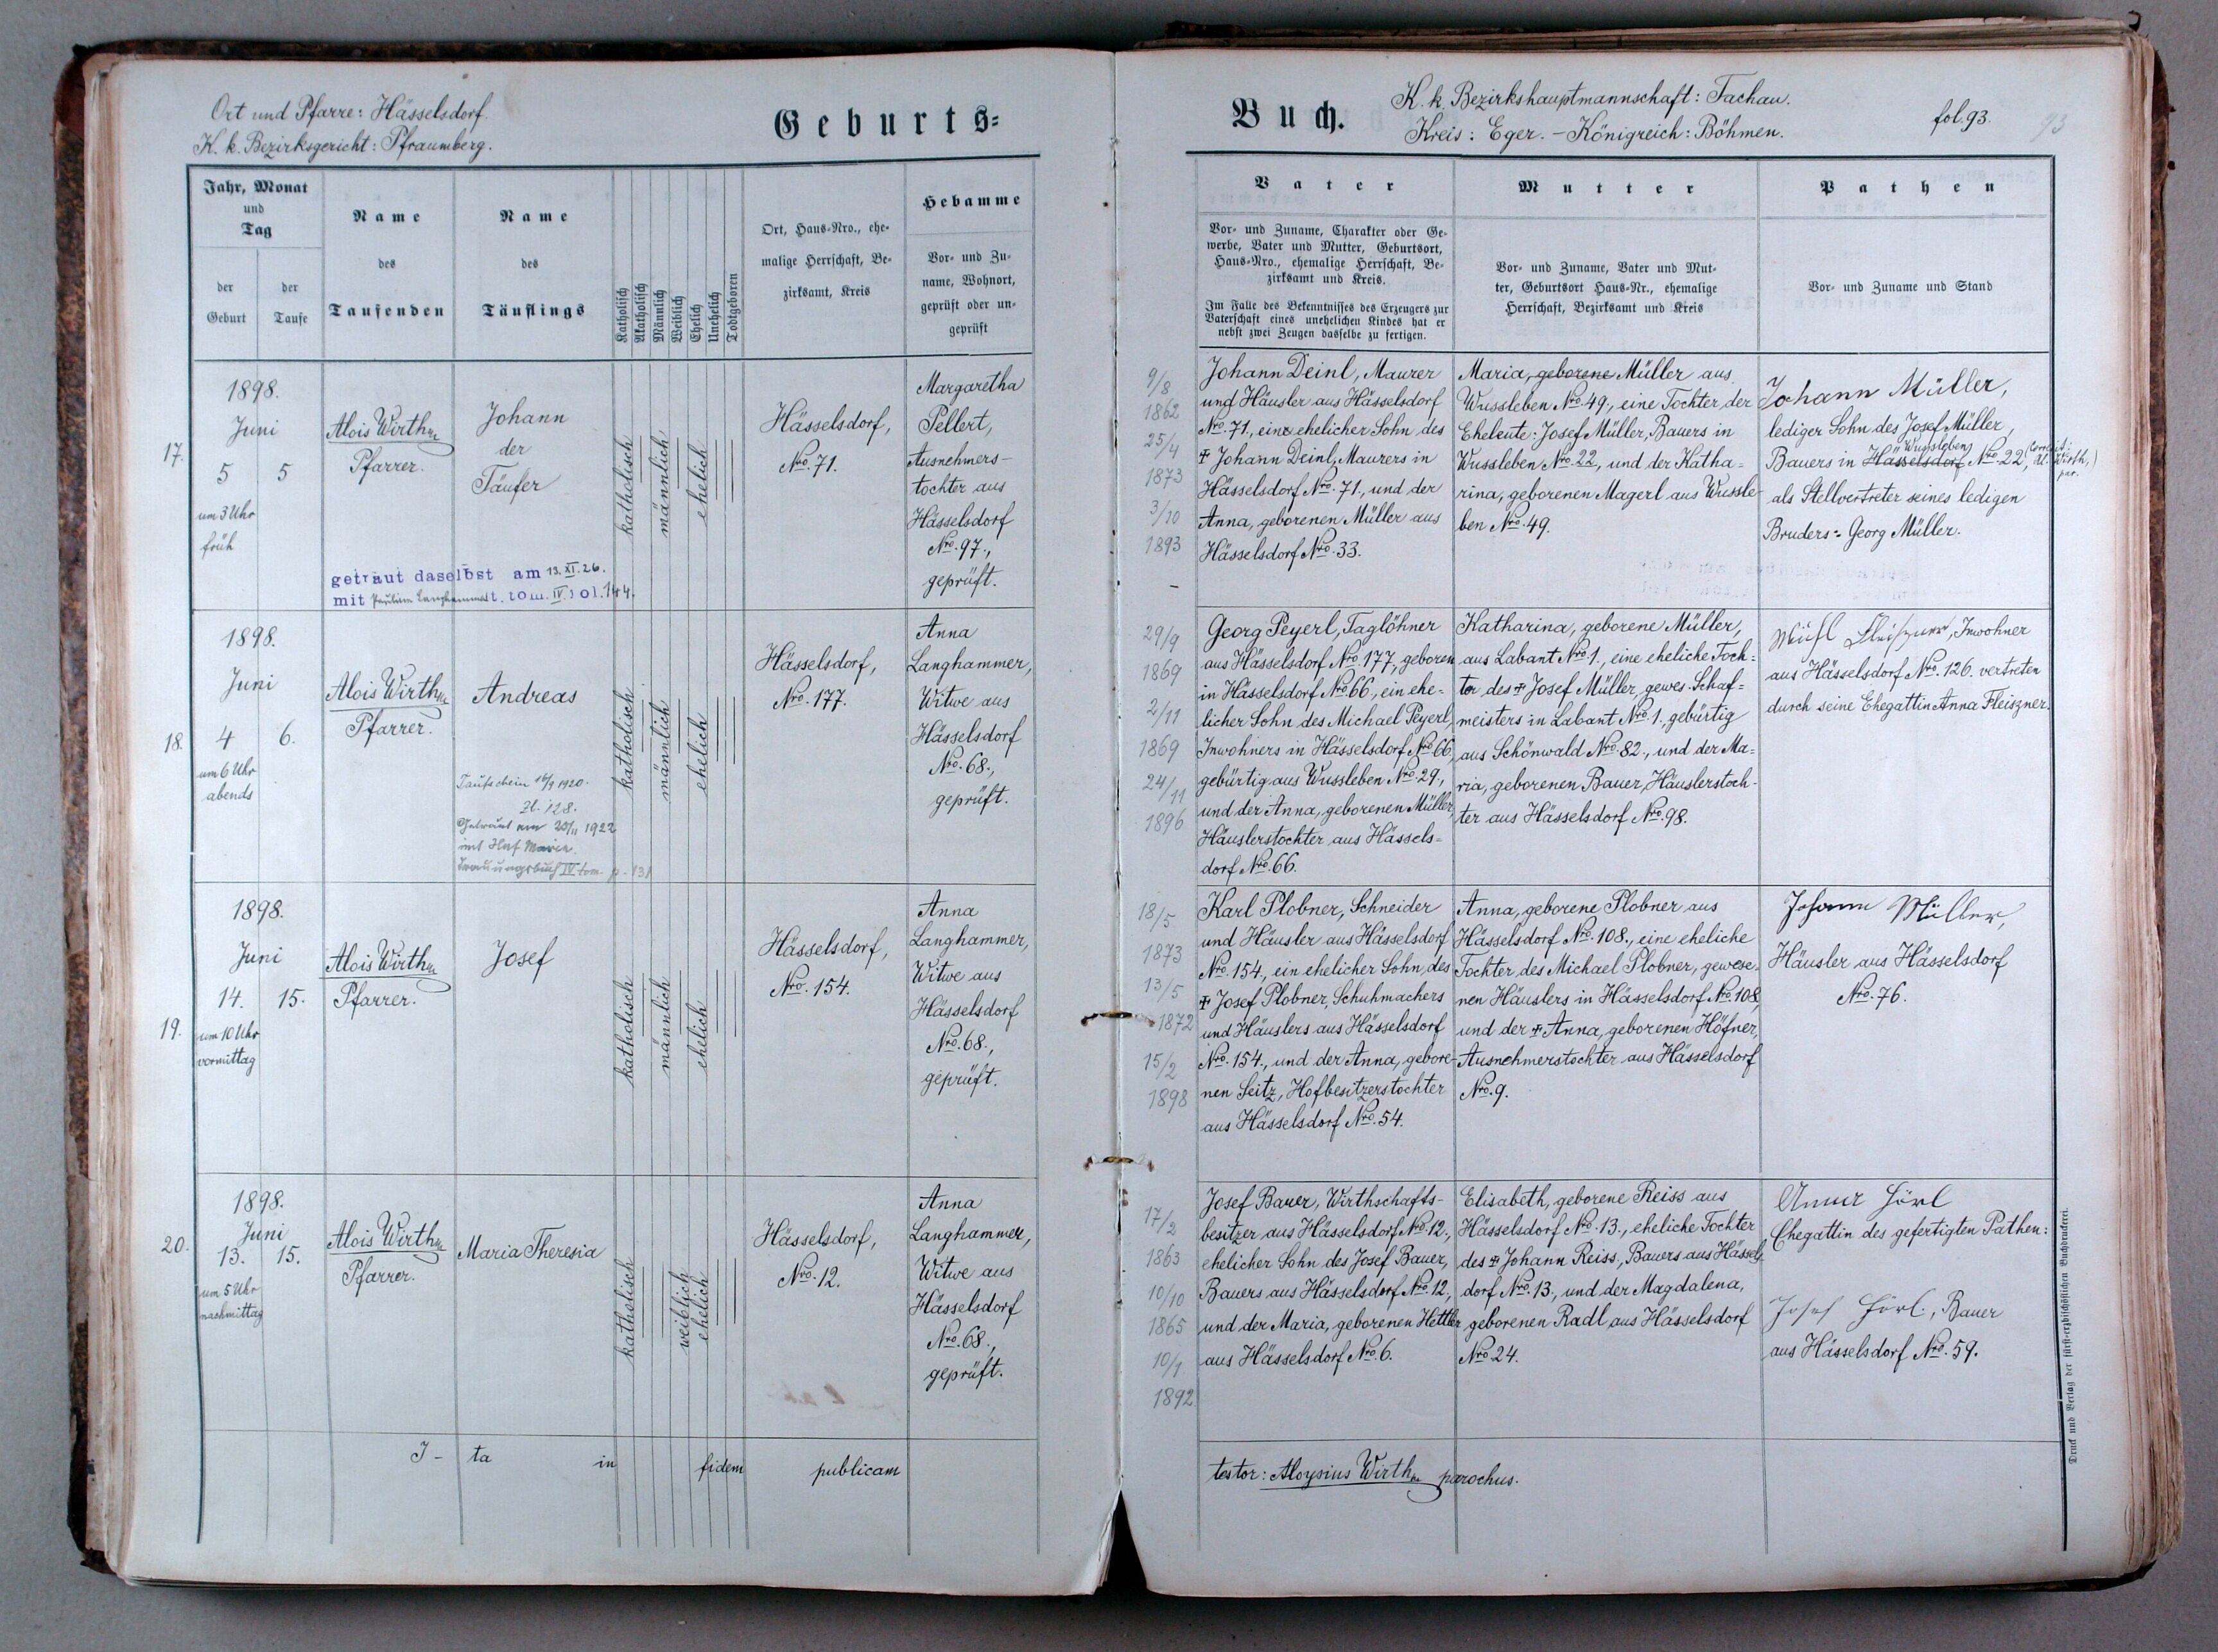 Ort und Pfarre: Hässelsdorf.
K. k. Bezirksgericht: Pfraumberg.
Geburts-
Jahr, Monat
und
Tag
der
Geburt
der
Taufe
Name
des
Taufenden
Name
des
Täuflings
Katholisch
Akatholisch
Männlich
Weiblich
Ehelich
Unehelich
Todtgeboren
Ort, Haus-Nro., ehe-
malige Herrschaft, Be-
zirksamt, Kreis
Hebamme
Vor- und Zu-
name, Wohnort,
geprüft oder un-
geprüft
17.
1898.
Juni
5 5
um 3 Uhr
früh
Alois Wirth
Pfarrer.
Johann
der
Täufer
katholisch
männlich
ehelich
Hässelsdorf,
Nro. 71.
Margaretha
Pellert,
Ausnehmers-
tochter aus
Hässelsdorf
Nro. 97.,
geprüft.
getraut daselbst am 13. XI. 26.
mit t. tom. IV. fol. 144.
18.
1898.
Juni
4 6.
um 6 Uhr
abends
Alois Wirth
Pfarrer.
Andreas
Taufschein 16/9 1920.
Zl. 128.
Getraut am 20/11 1922
mit Maria.
Trauungsbuch IV. tom. p. 131
katholisch
männlich
ehelich
Hässelsdorf,
Nro. 177.
Anna
Langhammer,
Witwe aus
Hässelsdorf
Nro. 68.,
geprüft.
19.
1898.
Juni
14. 15.
um 10 Uhr
vormittag
Alois Wirth
Pfarrer.
Josef
katholisch
männlich
ehelich
Hässelsdorf,
Nro. 154.
Anna
Langhammer,
Witwe aus
Hässelsdorf
Nro. 68.,
geprüft.
20.
1898.
Juni
13. 15.
um 5 Uhr
nachmittag
Alois Wirth
Pfarrer.
Maria Theresia
katholisch
weiblich
ehelich
Hässelsdorf,
Nro. 12.
Anna
Langhammer,
Witwe aus
Hässelsdorf
Nro. 68.,
geprüft.
I - ta in fidem publicam
Buch.
K. k. Bezirkshauptmannschaft: Tachau.
Kreis: Eger. - Königreich: Böhmen.
fol. 93.
93
Vater
Vor- und Zuname, Charakter oder Ge-
werbe, Vater und Mutter, Geburtsort,
Haus-Nro., ehemalige Herrschaft, Be-
zirksamt und Kreis.
Im Falle des Bekenntnisses des Erzeugers zur
Vaterschaft eines unehelichen Kindes hat er
nebst zwei Zeugen dasselbe zu fertigen.
Mutter
Vor- und Zuname, Vater und Mut-
ter, Geburtsort Haus-Nr., ehemalige
Herrschaft, Bezirksamt und Kreis
Pathen
Vor- und Zuname und Stand
9/8
1862
25/4
1873
3/10
1893
Johann Deinl, Maurer
und Häusler aus Hässelsdorf
Nro. 71., eine ehelicher Sohn des
✠ Johann Deinl, Maurers in
Hässelsdorf Nro. 71., und der
Anna, geborenen Müller aus
Hässelsdorf Nro. 33.
Maria, geborene Müller aus
Wussleben Nro. 49., eine Tochter der
Eheleute: Josef Müller, Bauers in
Wussleben Nro. 22., und der Katha-
rina, geborenen Magerl aus Wussle-
ben Nro. 49.
Johann Müller,
lediger Sohn des Josef Müller,
Wussleben
Bauers in Hässelsdorf Nro. 22,
als Stellvertreter seines ledigen
Bruders: Georg Müller.
29/9
1869
2/11
1869
24/11
1896
Georg Peyerl, Taglöhner
aus Hässelsdorf Nro. 177., geboren
in Hässelsdorf Nro. 66., ein ehe-
licher Sohn des Michael Peyerl,
Inwohners in Hässelsdorf Nro. 66,
gebürtig aus Wussleben Nro. 29.,
und der Anna, geborenen Müller,
Häuslerstochter aus Hässels-
dorf Nro. 66.
Katharina, geborene Müller,
aus Labant Nro. 1., eine eheliche Toch-
ter des ✠ Josef Müller, gewes. Schaf-
meisters in Labant Nro. 1., gebürtig
aus Schönwald Nro. 82., und der Ma-
ria, geborenen Bauer, Häuslerstoch-
ter aus Hässelsdorf Nro. 98.
Inwohner
aus Hässelsdorf Nro. 126. vertreten
durch seine Ehegattin Anna Fleiszner.
18/5
1873
13/5
1872
15/2
1898
Karl Plobner, Schneider
und Häusler aus Hässelsdorf
Nro. 154., ein ehelicher Sohn des
✠ Josef Plobner, Schuhmachers
und Häuslers aus Hässelsdorf
Nro. 154., und der Anna, gebore-
nen Seitz, Hofbesitzerstochter
aus Hässelsdorf Nro. 54.
Anna, geborene Plobner aus
Hässelsdorf Nro. 108., eine eheliche
Tochter des Michael Plobner, gewese-
nen Häuslers in Hässelsdorf Nro. 108,
und der ✠ Anna, geborenen Höfner,
Ausnehmerstochter aus Hässelsdorf
Nro. 9.
Johann Müller,
Häusler aus Hässelsdorf
Nro. 76.
17/2
1863
10/10
1865
10/1
1892
Josef Bauer, Wirthschafts-
besitzer aus Hässelsdorf Nro. 12.,
ehelicher Sohn des Josef Bauer,
Bauers aus Hässelsdorf Nro. 12.,
und der Maria, geborenen Hettler
aus Hässelsdorf Nro. 6.
Elisabeth, geborene Reiss aus
Hässelsdorf Nro. 13., eheliche Tochter
des ✠ Johann Reiss, Bauers aus Hässels-
dorf Nro. 13., und der Magdalena,
geborenen Radl aus Hässelsdorf
Nro. 24.
Anna Hörl
Ehegattin des gefertigten Pathen:
Josef Hörl, Bauer
aus Hässelsdorf Nro. 59.
testor: Aloysius Wirth parochus.
Druck und Verlag der fürst-erzbischöflichen Buchdruckerei.